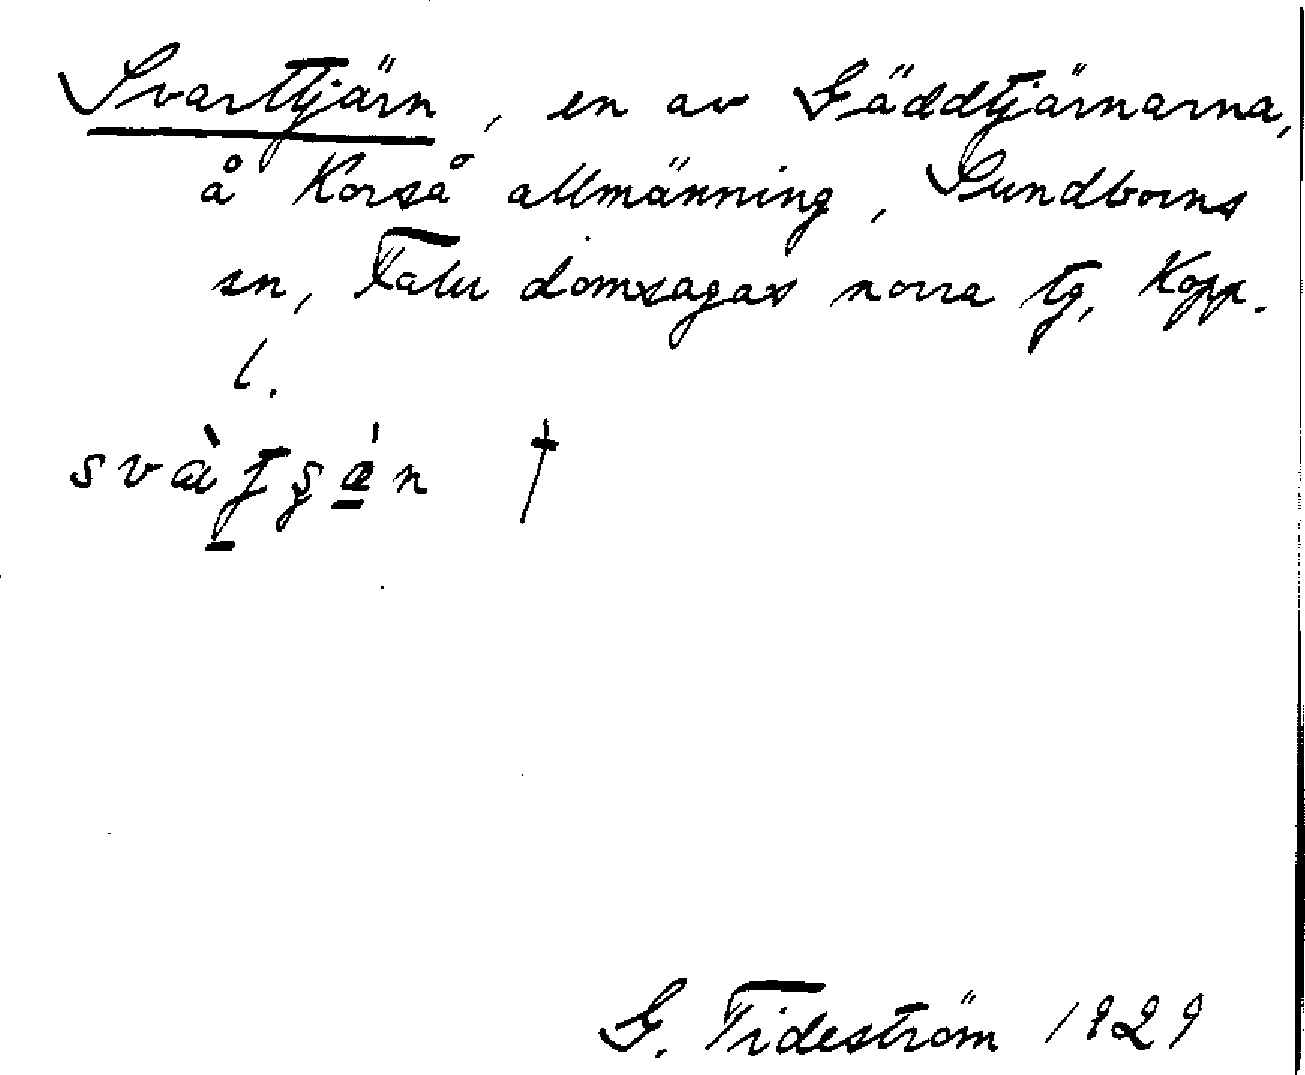 Svarttjärn, en av Gäddtjärnarna,
å Korså allmänning, Sundborns
sn, Falu domsagas norra tg, Kopp.
l.
G. Tideström 1929